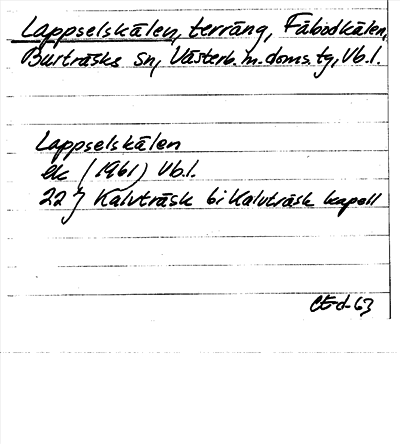 Lappselskålen, terräng, Fäbodkålen,
Burträsks sn, Västerb. m. doms. tg, Vb. l.
Lappselskålen
ek (1961) Vb. l.
22 j Kalvträsk bi Kalvträsk kapell